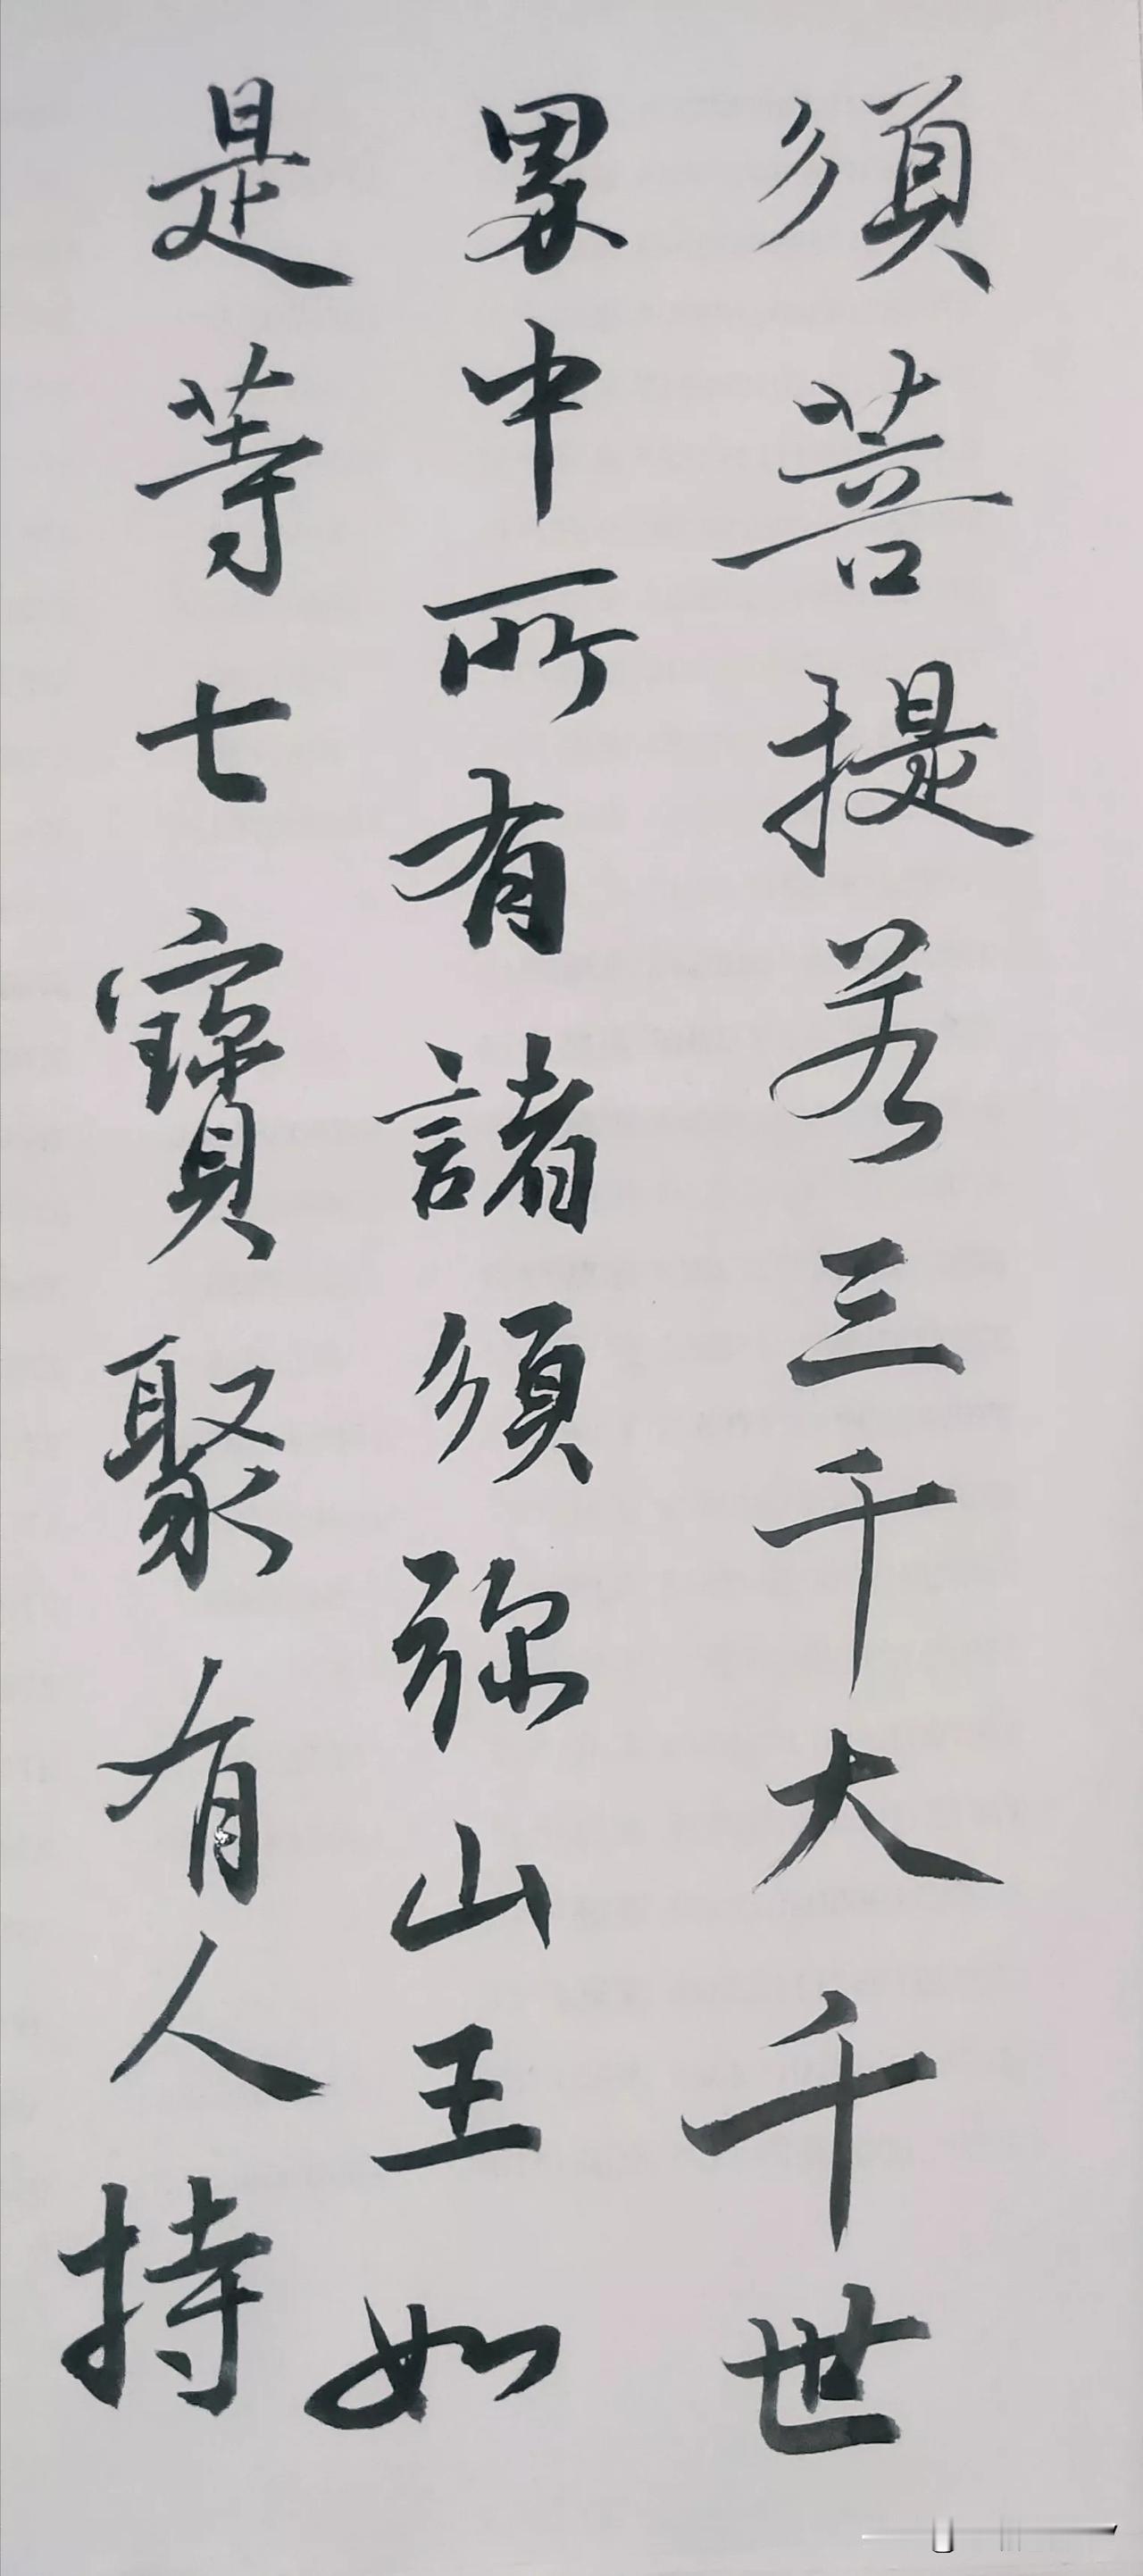 須菩提若三千大千世
界中所有諸須弥山王如
是等七寶聚有人持